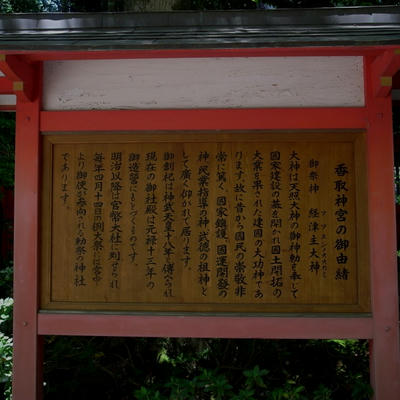 香取神宮の御由緒
フツヌシノオオカミ
御祭神　経津主大神
大神は天照大神の御神勅を奉じて
国家建設の基を開かれ国土開拓の
大業を果された建国の大功神であ
ります。故に古から国民の崇敬非
常に篤く、国家鎮護、国運開発の
神、民業指導の神、武徳の祖神と
して広く仰がれて居ります。
御創祀は神武天皇十八年と傳へられ
現在の御社殿は元禄十三年の
御造營にもとづくものです。
明治以降は官幣大社に列せられ
毎年四月十四日の例大祭には宮中
より御使が参向される勅祭の神社
であります。